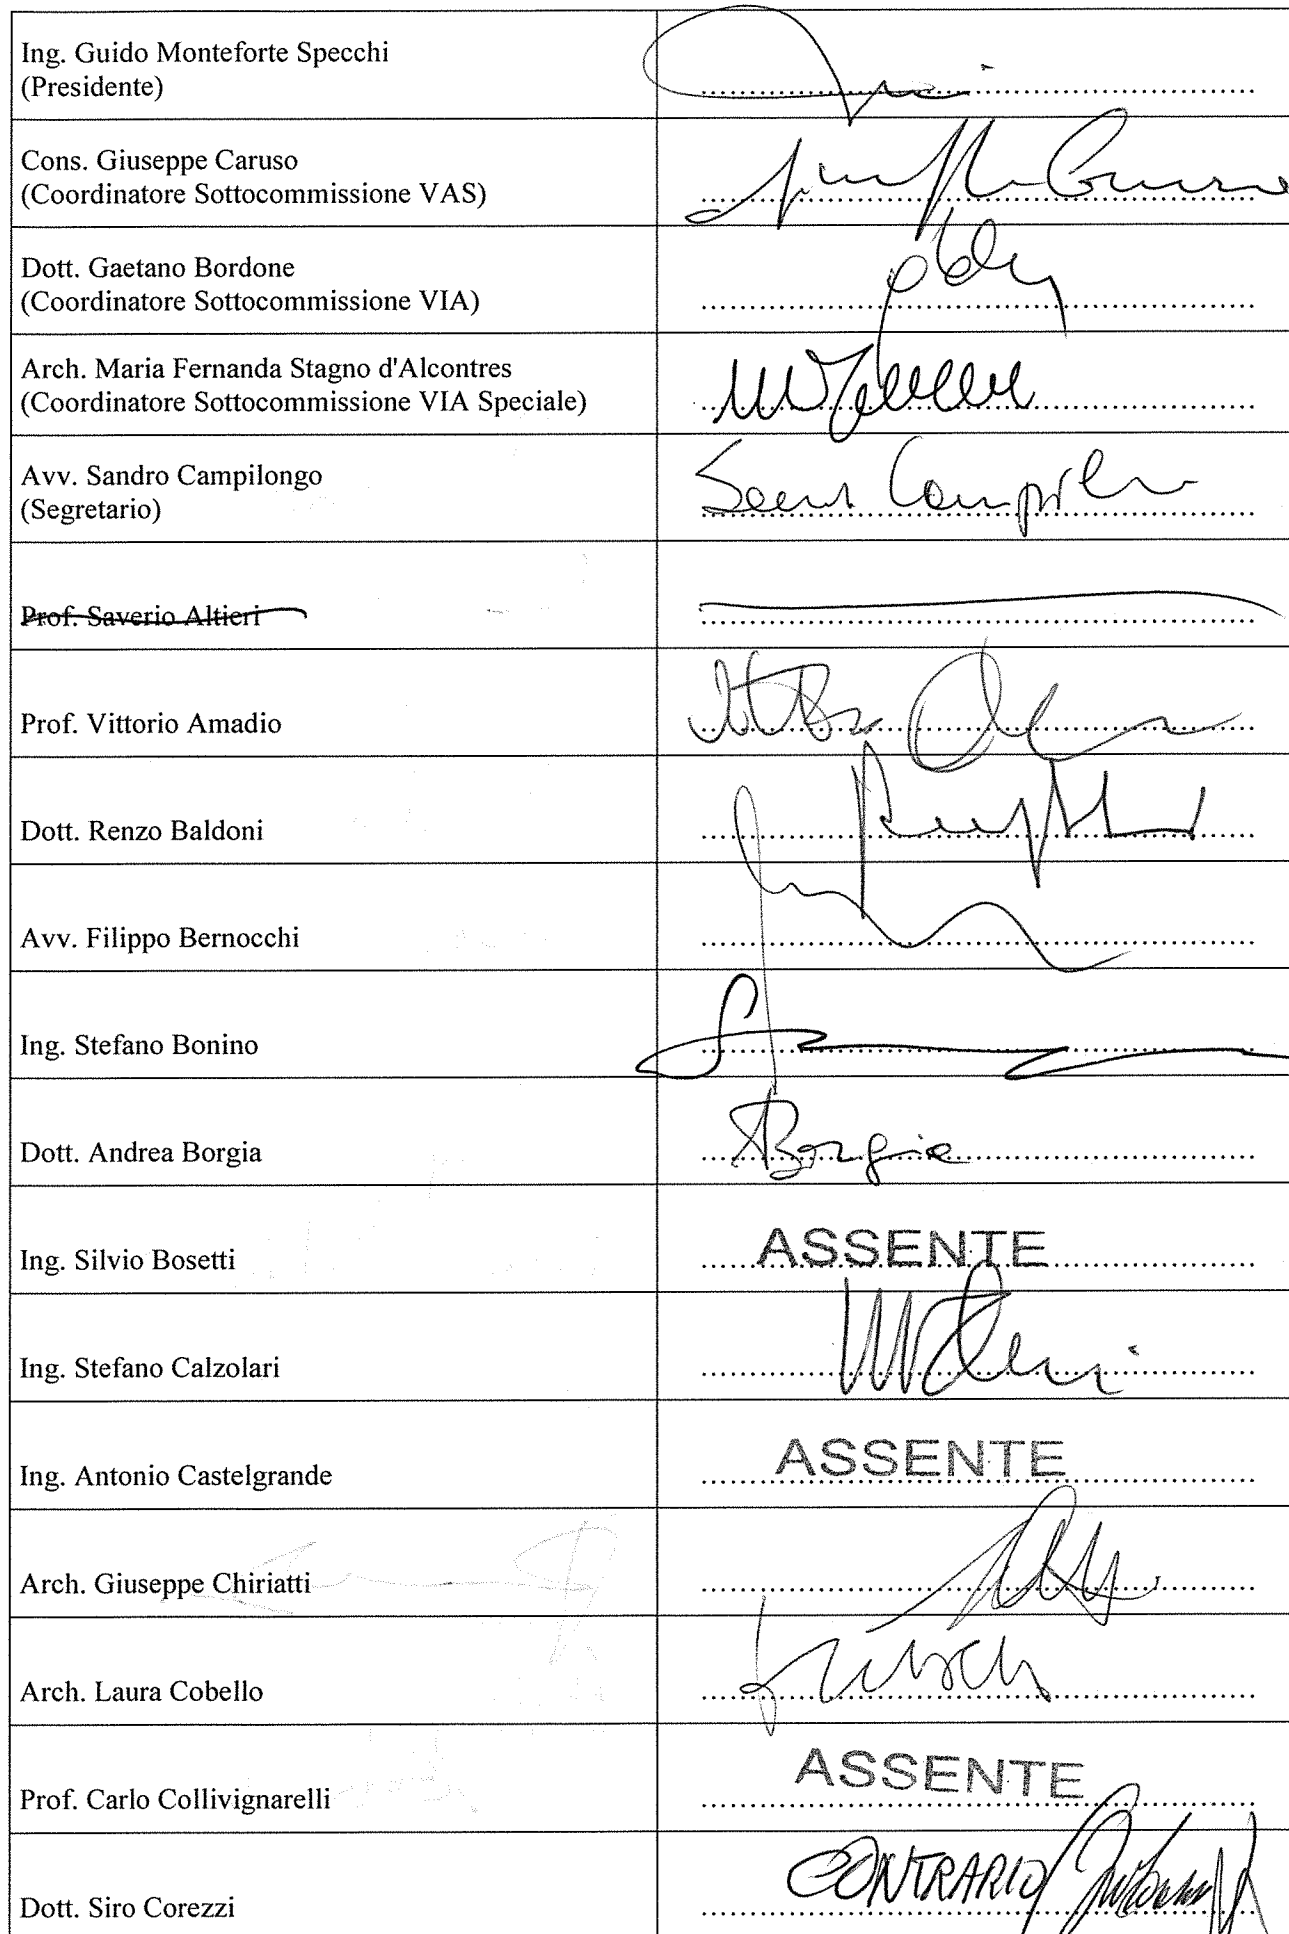 Ing. Guido Monteforte Specchi
(Presidente)
Cons. Giuseppe Caruso
(Coordinatore Sottocommissione VAS)
Dott. Gaetano Bordone
(Coordinatore Sottocommissione VIA)
Arch. Maria Fernanda Stagno d'Alcontres
(Coordinatore Sottocommissione VIA Speciale)
Avv. Sandro Campilongo
(Segretario)
Prof. Saverio Altieri
Prof. Vittorio Amadio
Dott. Renzo Baldoni
Avv. Filippo Bernocchi
Ing. Stefano Bonino
Dott. Andrea Borgia
Borgia
Ing. Silvio Bosetti
ASSENTE
Ing. Stefano Calzolari
Ing. Antonio Castelgrande
ASSENTE
Arch. Giuseppe Chiriatti
Arch. Laura Cobello
Prof. Carlo Collivignarelli
ASSENTE
Dott. Siro Corezzi
CONTRARIO